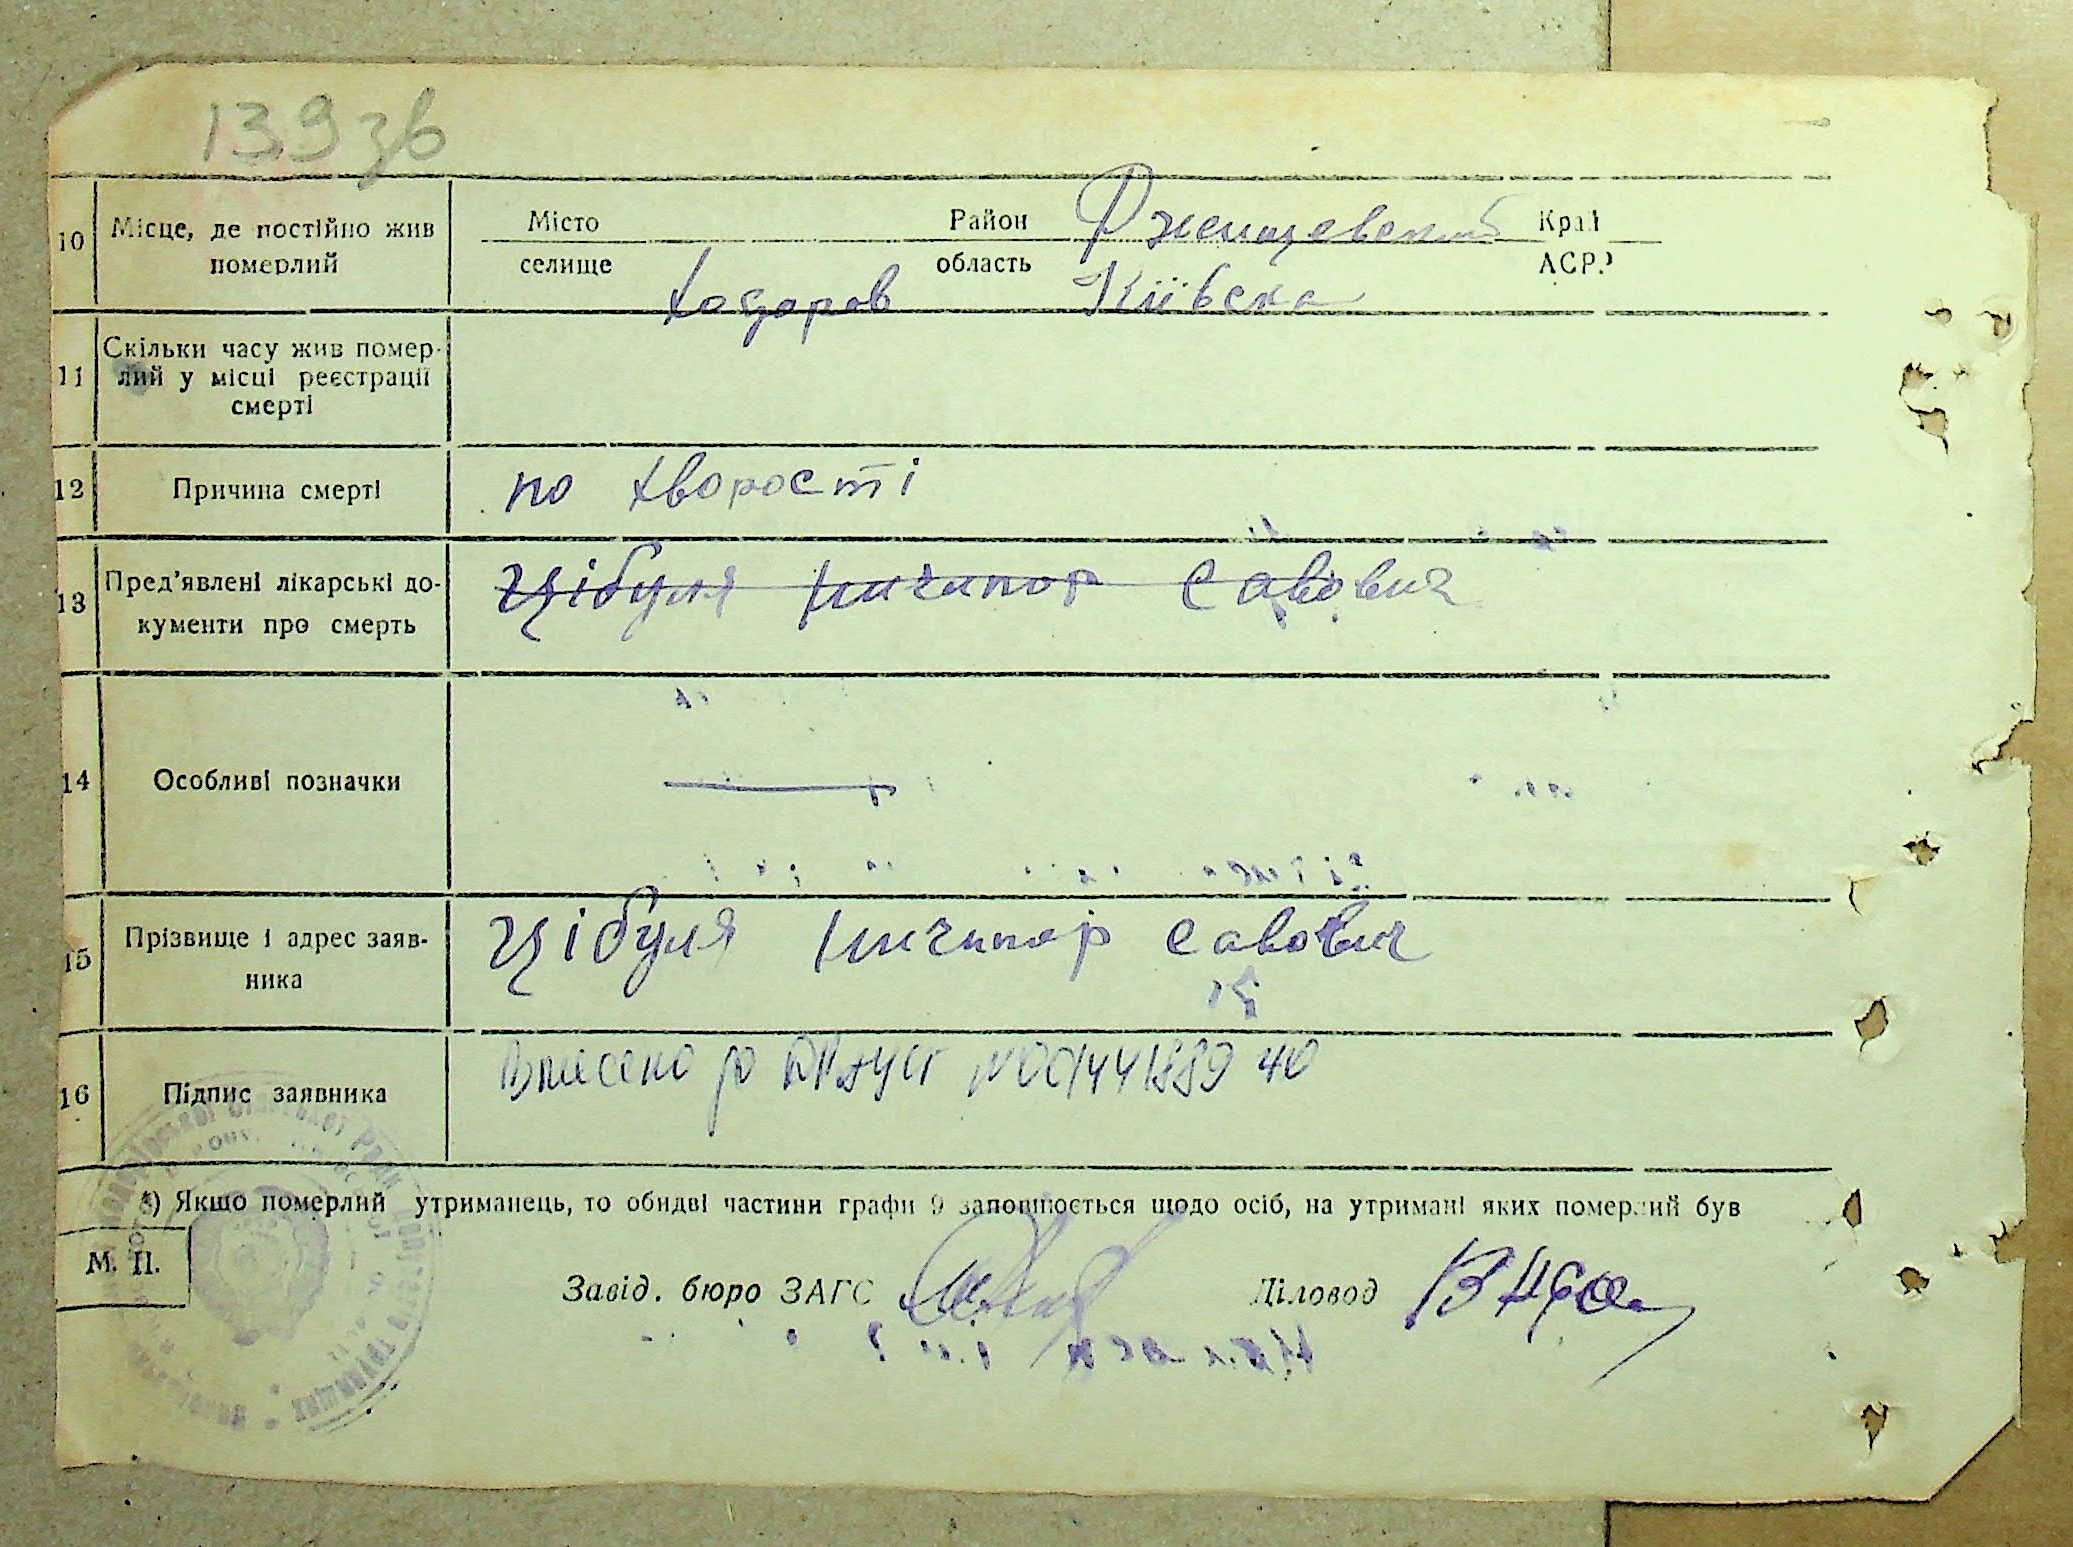 139 зв
10 Місце, де постійно жив померлий Місто Район Ржищевский Край
селище Ходоров область Київска АСРР
11 Скільки часу жив помер-
лий у місці реєстрації
смерті
12 Причина смерті по хворости
13 Пред'явлені лікарські до- Цібуля Ничипор Савович
кументи про смерть
14 Особливі позначки
15 Прізвище і адрес заяв- Цібуля Ничипор Савович
ника
16 Підпис заявника Внесено до 40
*) Якщо померлий утриманець, то обидві частини графи 9 заповнюється щодо осіб, на утримані яких померлий був
М. П.
Завід. бюро ЗАГС Діловод